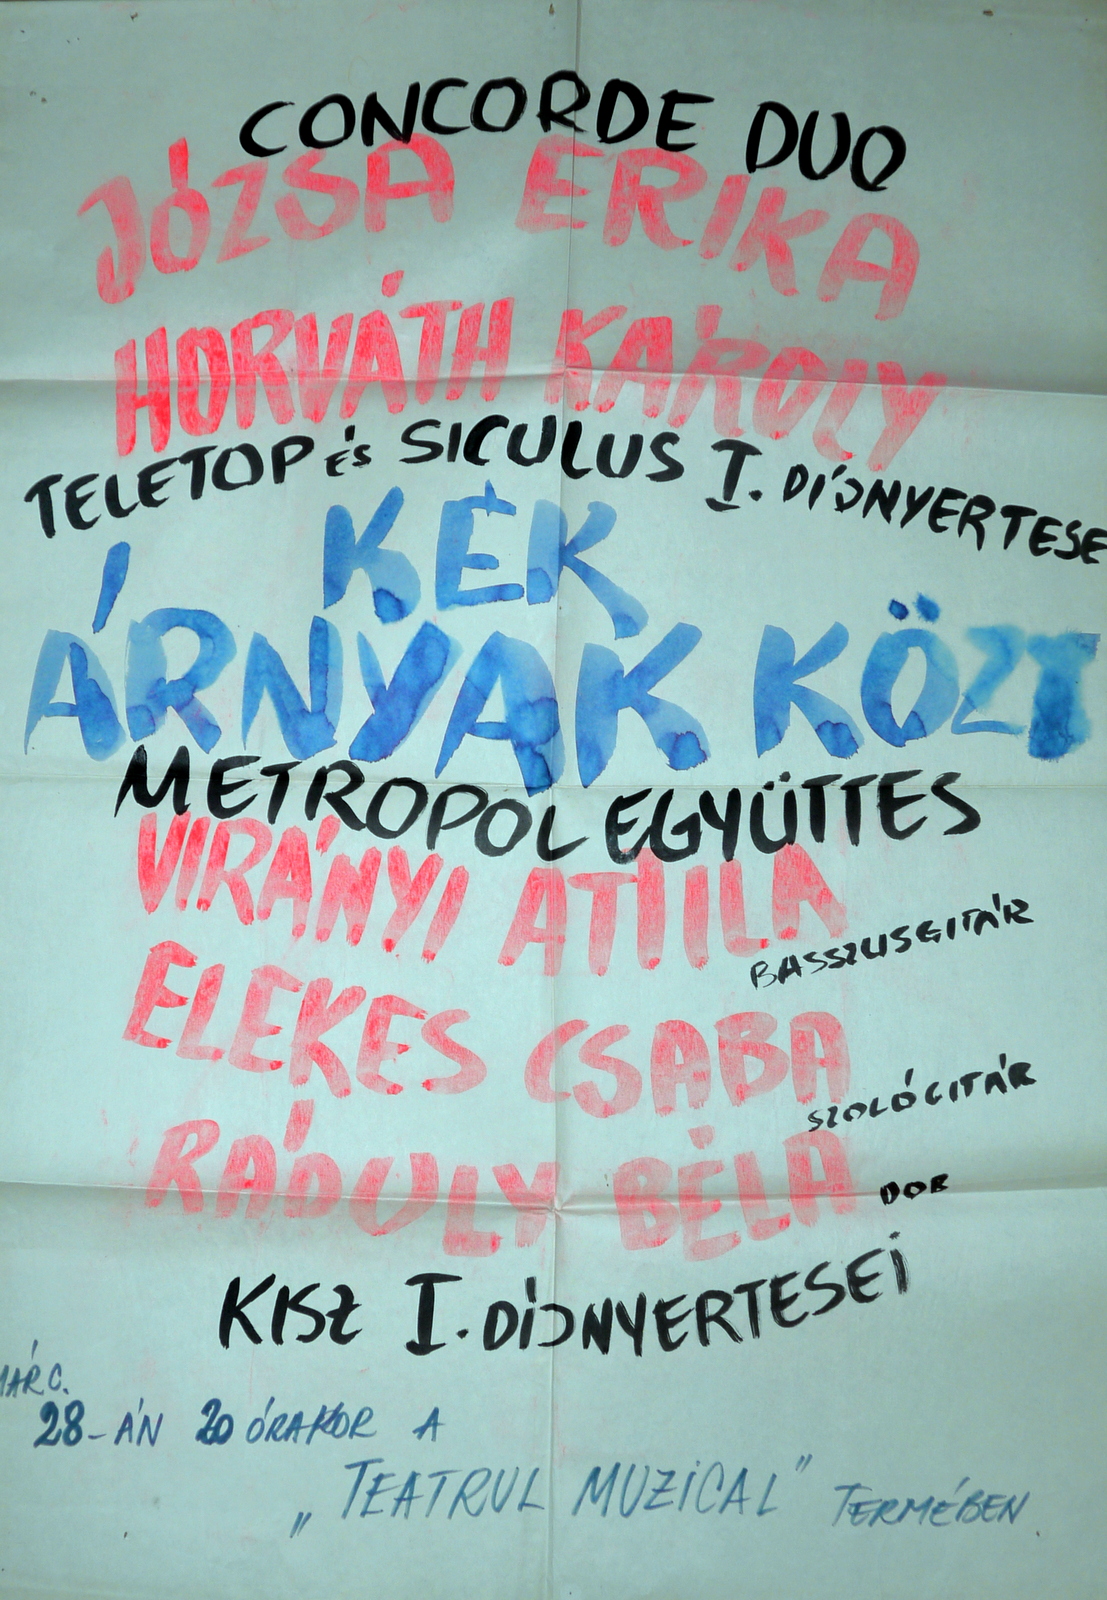 CONCORDE DUO
JÓZSA ERIKA
HORVÁTH KÁROLY
TELETOP és SICULUS I. DÍJNYERTESE
KÉK
ÁRNYAK KÖZT
METROPOL EGYÜTTES
VIRÁNYI ATTILA
BASSZUSGITÁR
ELEKES CSABA
SZOLÓGITÁR
RÁDULY BÉLA
DOB
KISZ I. DÍJNYERTESEI
MÁRC.
28-ÁN 20 ÓRAKOR A
„TEATRUL MUZICAL" TERMÉBEN